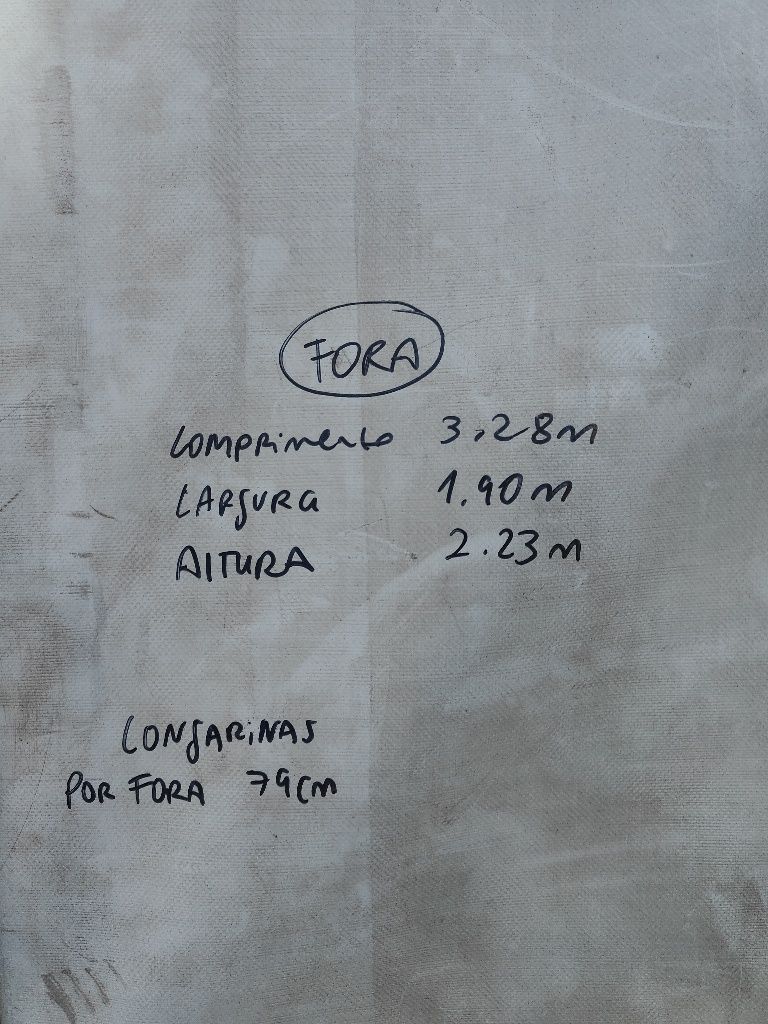 FORA
Comprimento 3.28m
LARGURA 1.90m
ALTURA 2.23m
LONGARINAS
POR FORA 79cm